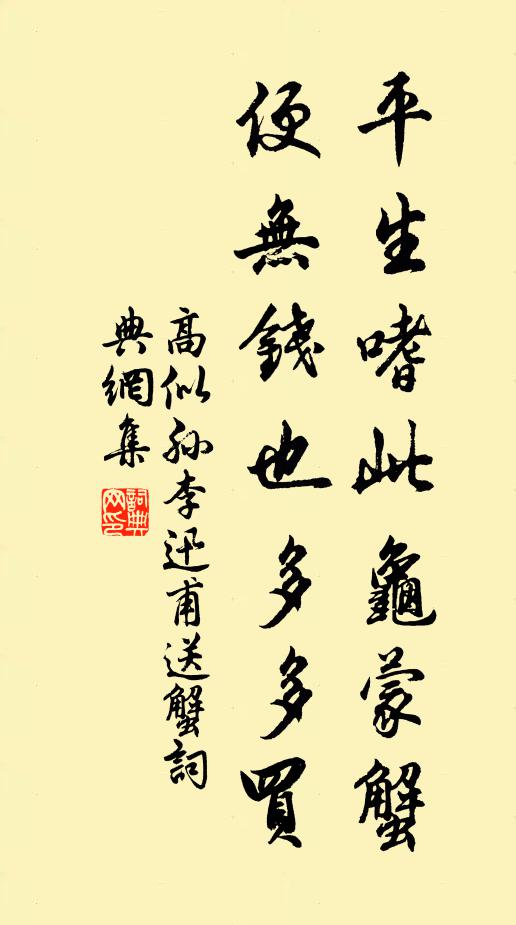 平生嗜此龜蒙蟹
便無錢也多多買
高似孙李迅甫送蟹詞
典網集
詞典网印